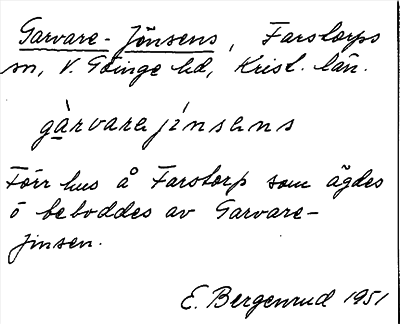 Garvare-Jönsens, Farstorps
sn, V. Göinge hd, Krist. län.
gàrvare jínsens
Förr hus å Farstorp som ägdes
o beboddes av Garvare-
jinsen.
E. Bergenrud 1951